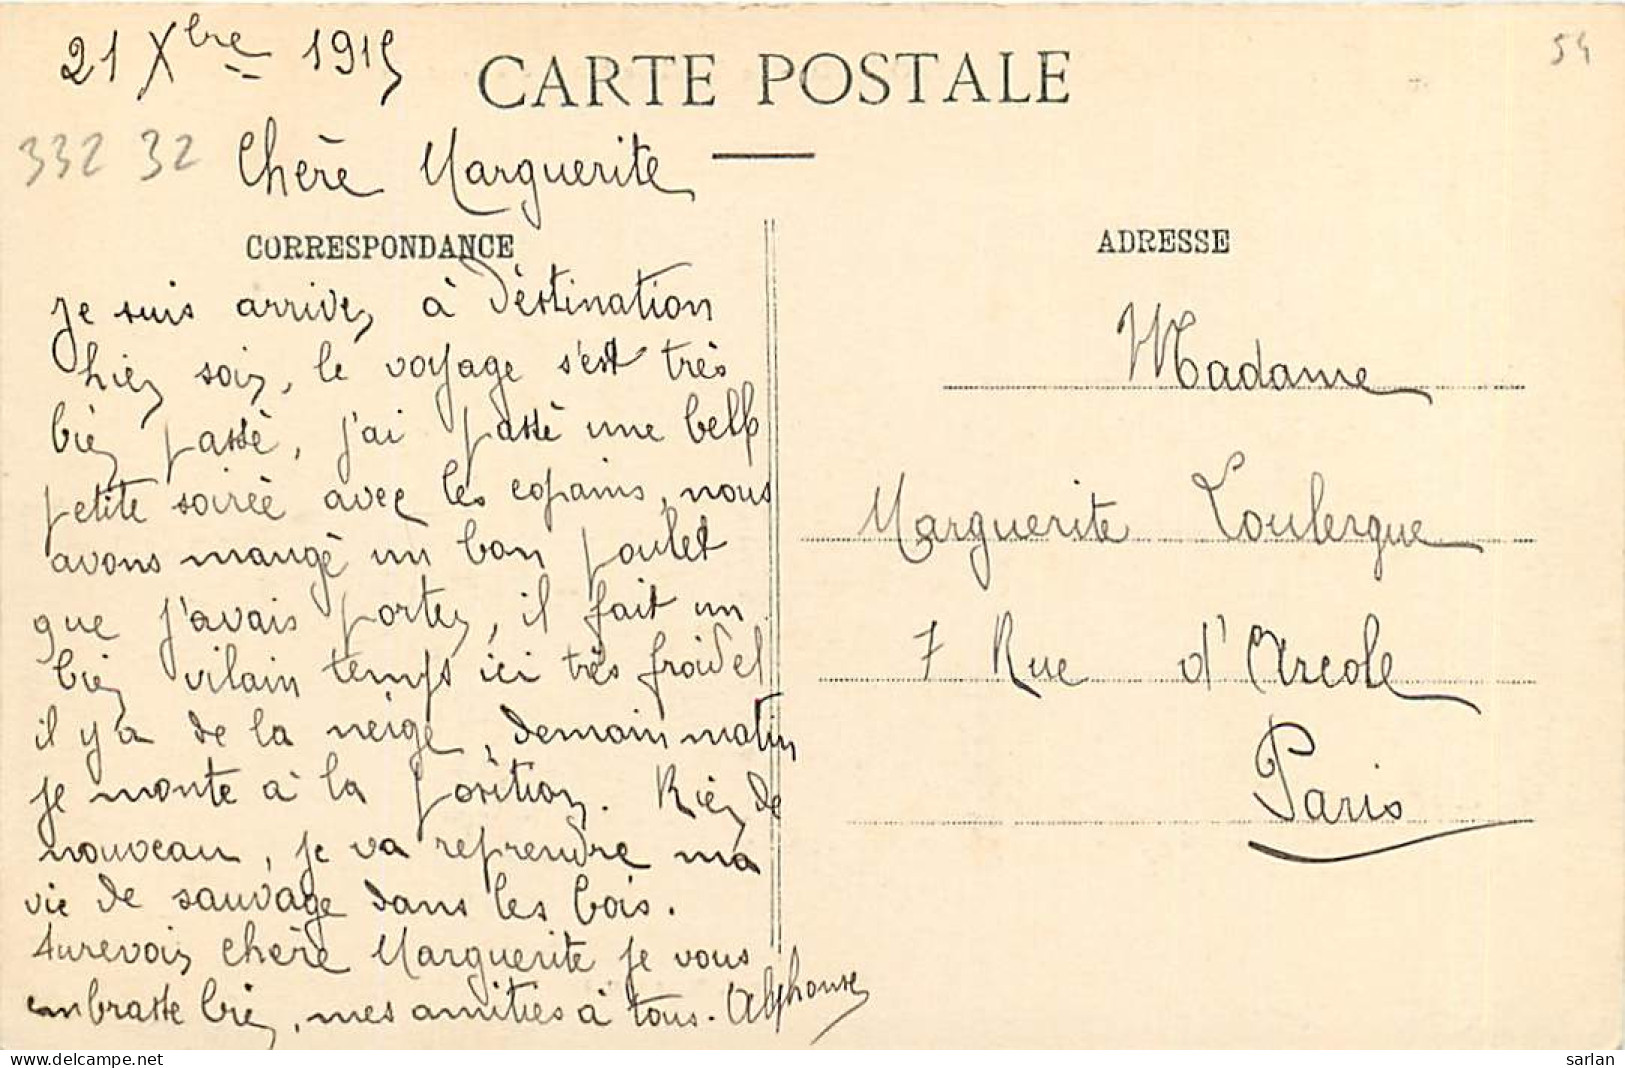 21 Xbre 1915
CARTE POSTALE
54
332 32
Chère Marguerite
CORRESPONDANCE
je suis arrivez à déstination
hier soir, le voyage s'est très
bien passé, j'ai passé une belle
petite soirée avec les copains, nous
avons mangé un bon poulet
que j'avais portez, il fait un
bien vilain temps ici très froid et
il y a de la neige, demain matin
je monte à la position. Rien de
nouveau, je va reprendre ma
vie de sauvage dans les bois.
Aurevoir chère Marguerite je vous
embrasse bien, mes amitiés à tous. Alphonse
ADRESSE
Madame
Marguerite Loulergue
7 Rue d'Arcole
Paris
sarlan